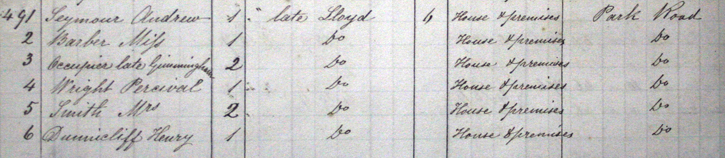 491 Seymour Andrew 1 " late Lloyd 6 House & premises Park Road
2 Barber Miss 1 Do House & premises Do
3 Occupier late 2 Do House & premises Do
4 Wright Percival 1 Do House & premises Do
5 Smith Mrs 2 Do House & premises Do
6 Dunnicliff Henry 1 Do House & premises Do